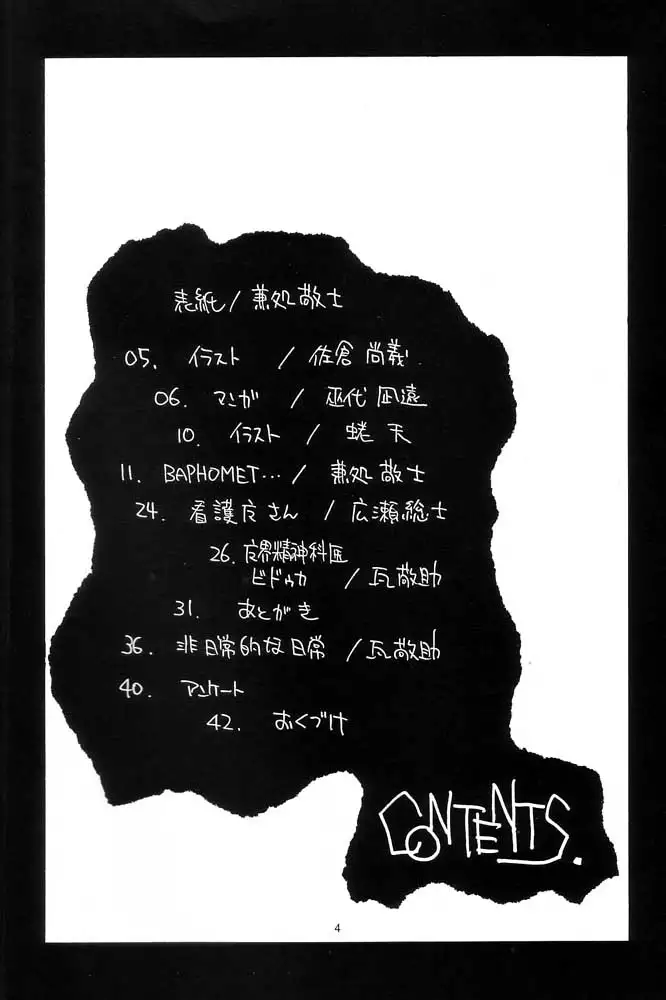 表紙/兼処敬士
05. イラスト / 佐倉尚義
06. マンガ / 巫代凪遠
10. イラスト / 蜷天
11. BAPHOMET… / 兼処敬士
24. 看護庁さん / 広瀬総士
26. 魔界精神科医
ビドゥカ / 瓦敬助
31. あとがき
36. 非日常的な日常 / 瓦敬助
40. アンケート
42. おくづけ
CONTENTS.
4